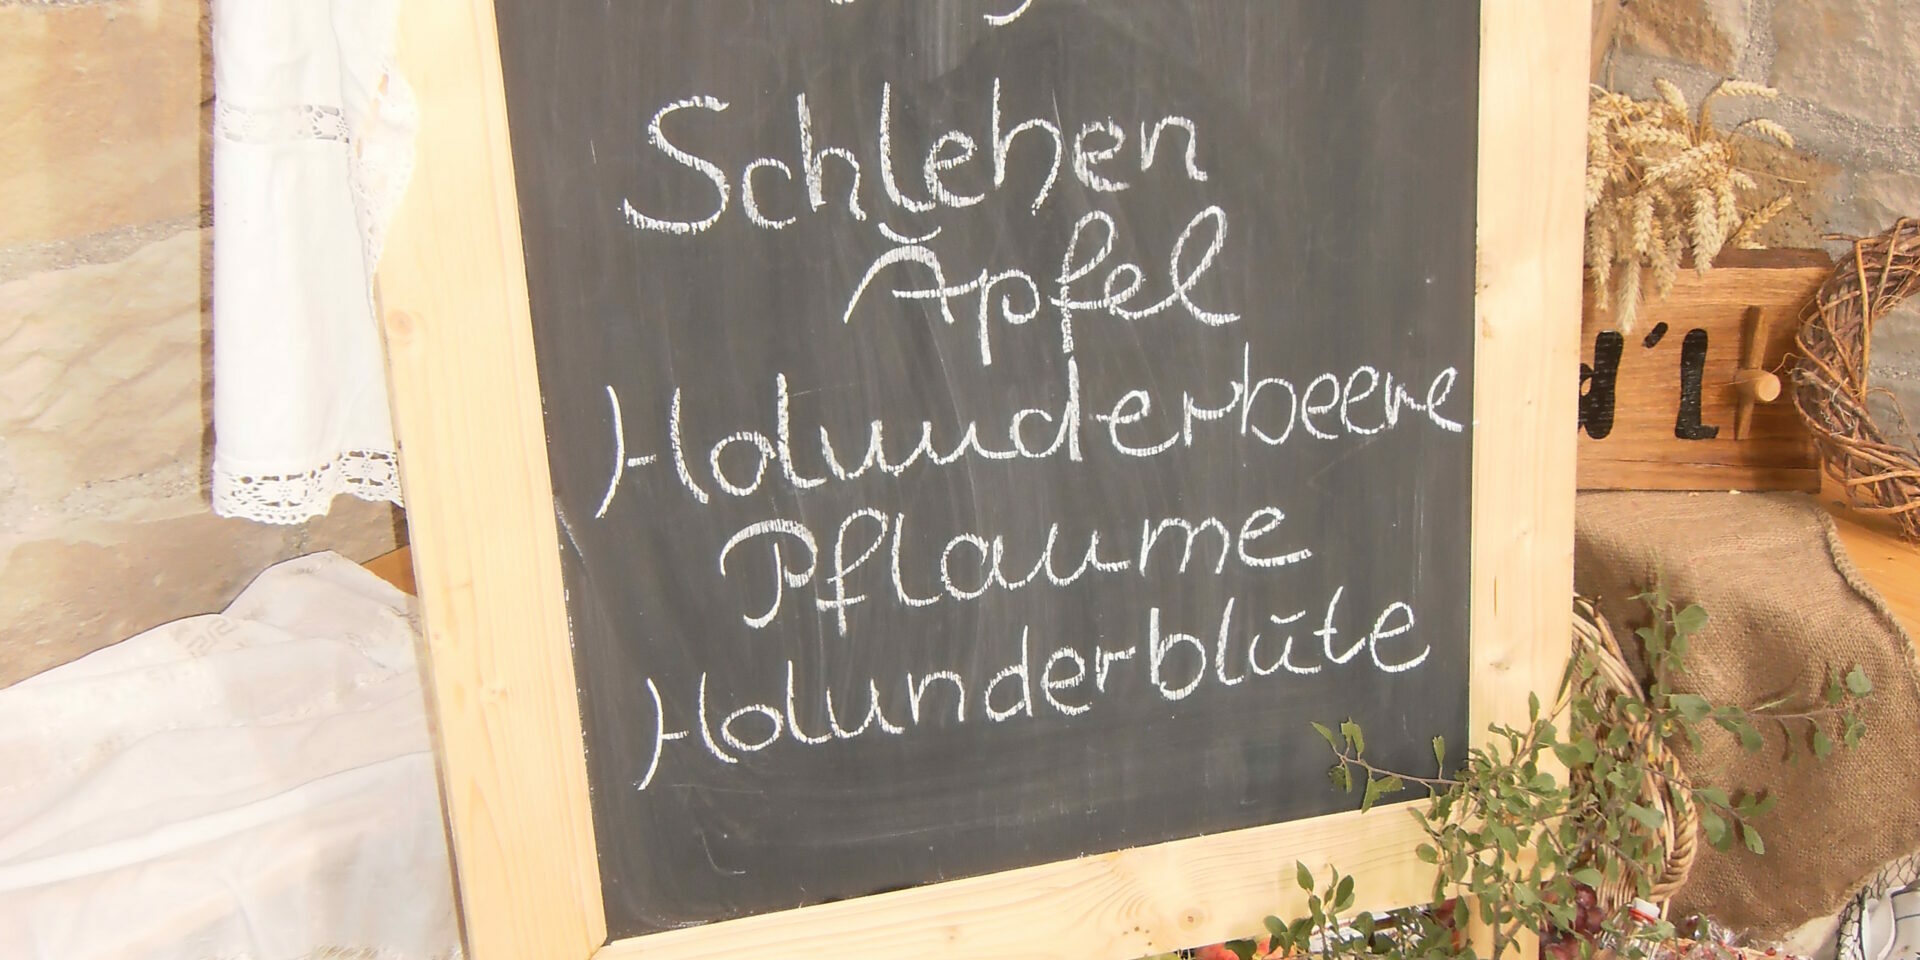 Schlehen
Äpfel
Holunderbeere
Pflaume
Holunderblüte
'l